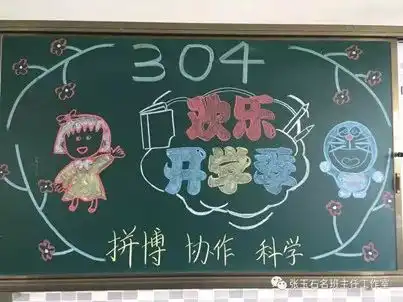 304
欢乐
开学季
拼博 协作 科学
张玉石名班主任工作室